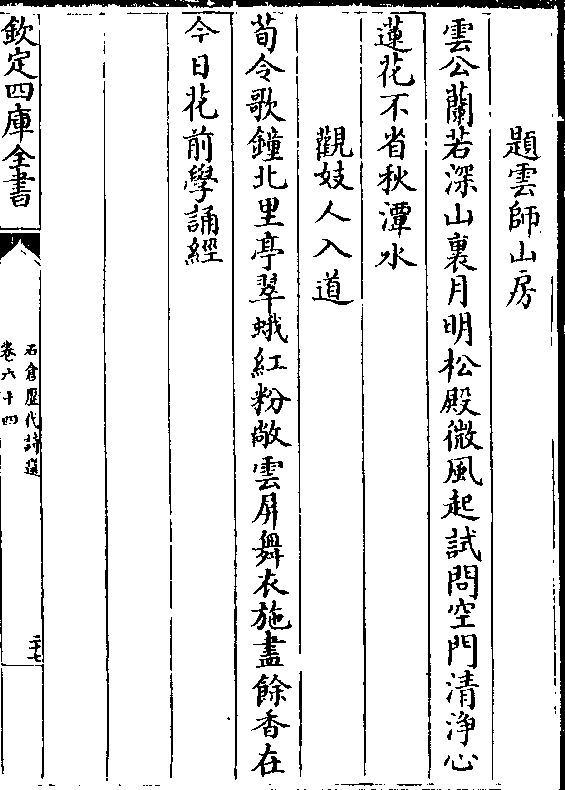 題雲師山房
雲公蘭若深山裏月明松殿微風起試問空門清浄心
蓮花不省秋潭水
觀妓人入道
荀令歌鐘北里亭翠蛾紅粉敞雲屏舞衣施盡餘香在
今日花前學誦經
欽定四庫全書
石倉歷代詩選
卷六十四
二十七